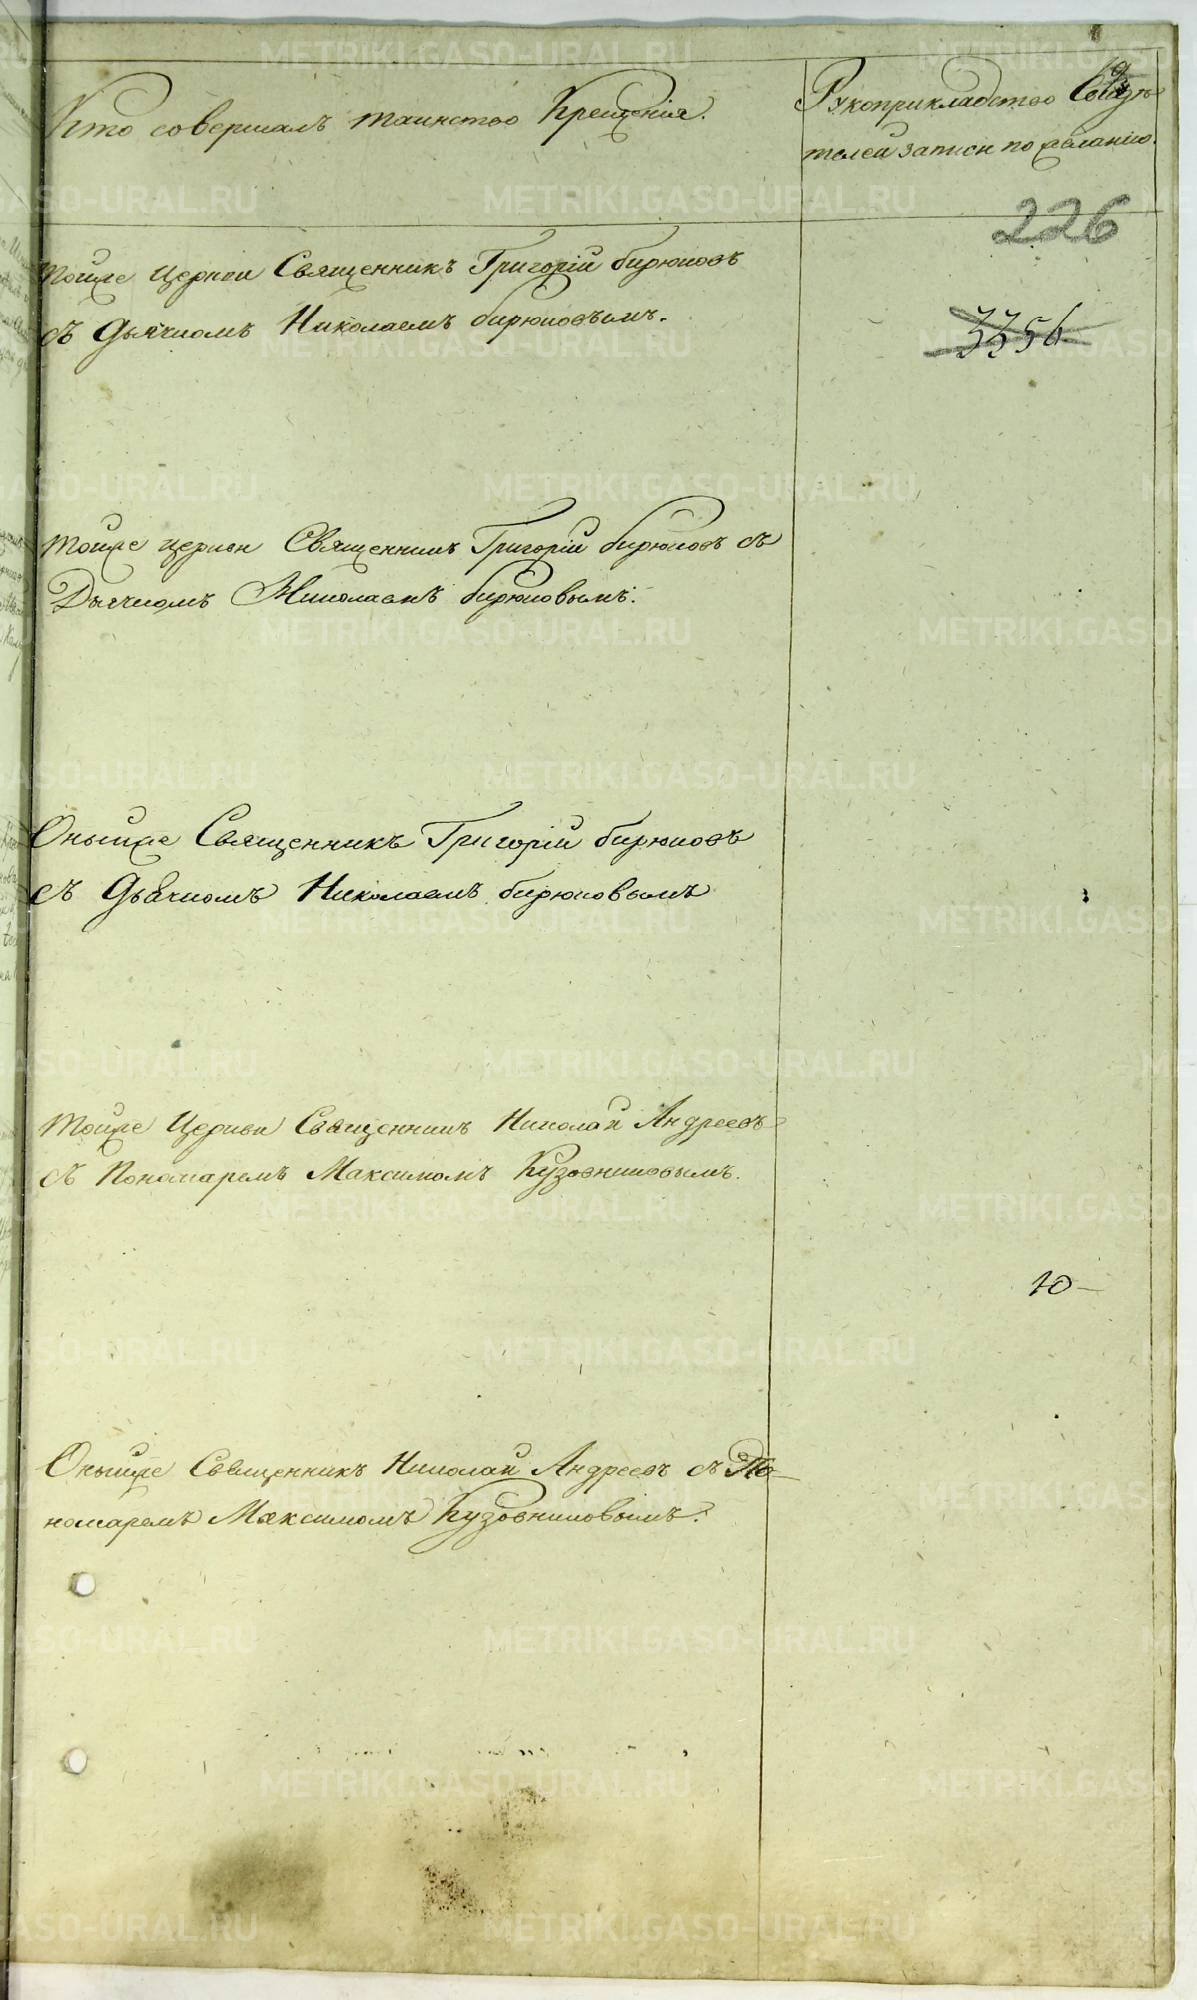 Кто совершалъ таинство Крещенія.
Рукоприкладство Свидѣ-
телей записи по желанію.
226
Тойже Церкви Священникъ Григорій Бирюковъ
съ Дьячкомъ Николаемъ Бирюковымъ.
3356
Тойже церкви Священникъ Григорій Бирюковъ съ
Дьячкомъ Николаемъ Бирюковымъ.
Оныйже Священникъ Григорій Бирюковъ
съ Дьячкомъ Николаемъ Бирюковымъ
Тойже Церкви Священникъ Николай Андреевъ
съ Пономаремъ Максимомъ Кузовниковымъ.
10
Оныйже Священникъ Николай Андреевъ съ По-
номаремъ Максимомъ Кузовниковымъ.
METRIKI.GASO-URAL.RU